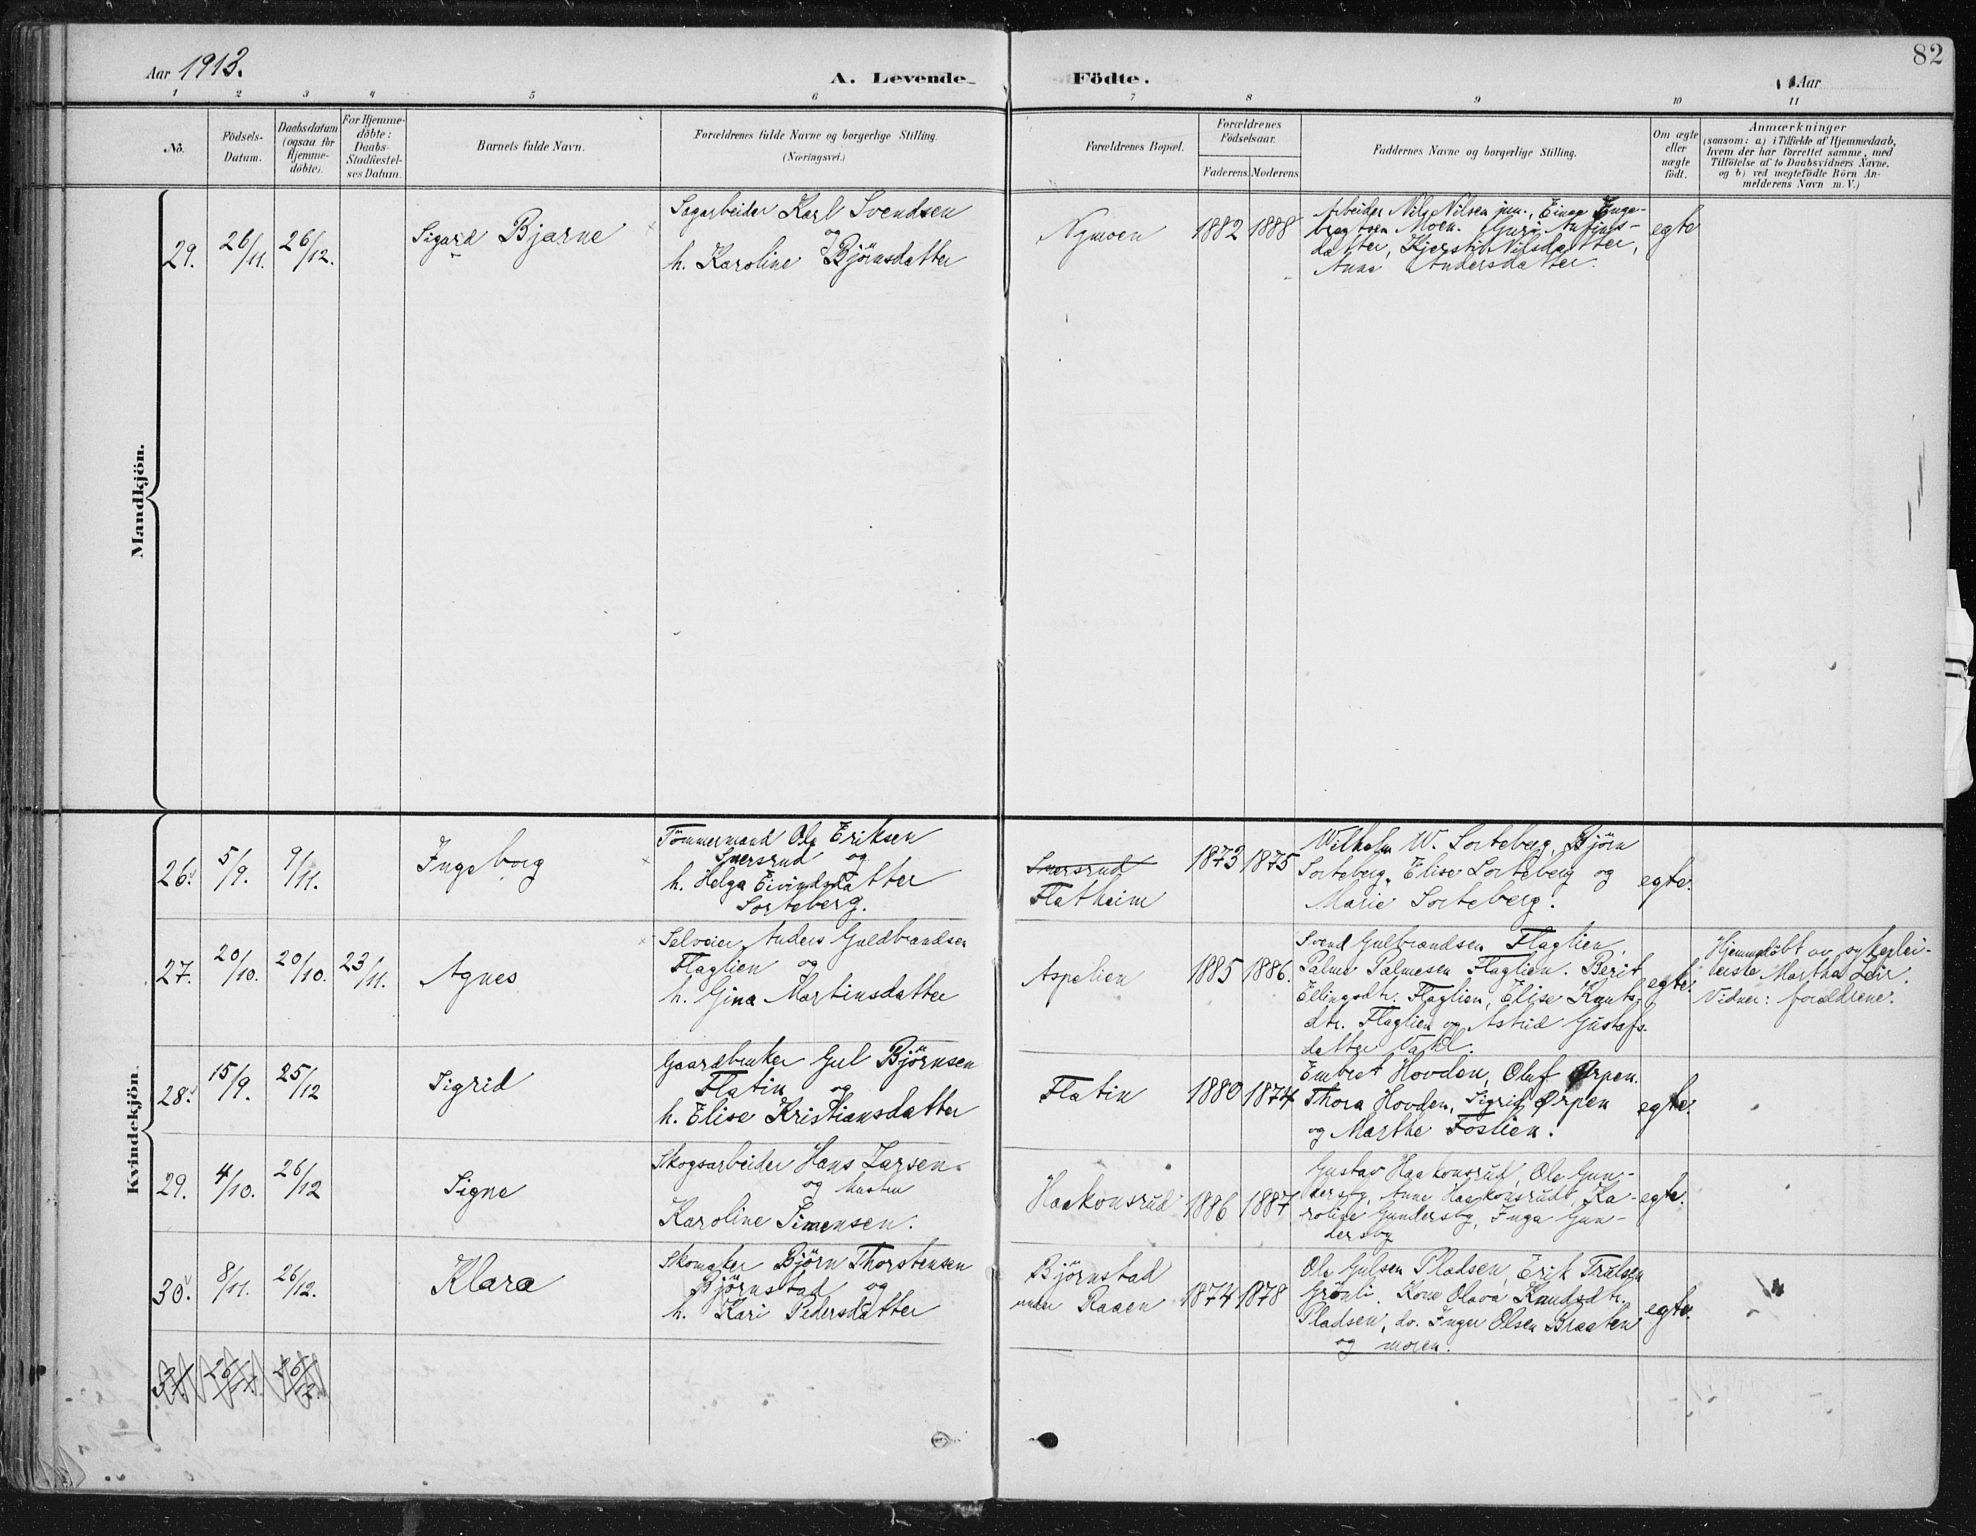 82
Aar 1913.
A. Levende Födte.
Aar
1 2 3 4 5 6 7 8 9 10 11
No.
Födsels-
Datum.
Daabsdatum
(ogsaa for
Hjemme-
döbte).
For Hjemme-
döbte:
Daabs-
Stadfæstel-
ses Datum.
Barnets fulde Navn.
Forældrenes fulde Navne og borgerlige Stilling.
(Næringsvei.)
Forældrenes Bopæl.
Forældrenes
Födselsaar.
Faderens. Moderens.
Faddernes Navne og borgerlige Stilling.
Om ægte
eller
uægte
födt.
Anmærkninger
(saasom: a) i Tilfælde af Hjemmedaab,
hvem der har forrettet samme, med
Tilföielse af to Daabsvidners Navne,
og b) ved uægtefödte Börn An-
melderens Navn m. V.)
Mandkjön.
29. 26/11. 26/12. Sigurd Bjarne
Sagarbeider Karl Svendsen
og
h. Karoline Björnsdatter
Nymoen 1882 1888
Arbeider Nils Nilsen jun., Einar Enge-
bregtsen Moen. Guri Anfins-
datter, Kjersti Nilsdatter,
Anna Andersdatter.
egte
Kvindekjön.
26. 5/9. 9/11. Ingeborg
Tömmermand Ole Eriksen
Snersrud og
h. Helga Eivindsdatter
Sorteberg.
Snersrud
Flatheim
1873 1875
Wilhelm W. Sorteberg, Björn
Sorteberg, Elise Sorteberg og
Marie Sorteberg.
egte.
27. 20/10. 20/10. 23/11. Agnes
Selveier Anders Guldbrandsen
Flaglien og
h. Gina Martinsdatter
Aspelien 1885 1886.
Svend Gulbrandsen Flaglien,
Palme Palmesen Flaglien. Berit
Ellingsdtr. Flaglien, Elise Knuts-
dtr. Flaglien og Astrid Gustafs-
datter
egte.
Hjemmedöbt av sykeplei-
erske Martha Leir.
Vidner: forældrene.
28. 15/9. 25/12 Sigrid
Gaardbruker Gul Björnsen
Flatin og
h. Elise Kristiansdatter
Flatin 1880 1874
Embret Hovden, Oluf Ørpen.
Thora Hovden, Sigrid Ørpen
og Marthe Foslien.
egte.
29. 4/10. 26/12 Signe
Skogsarbeider Hans Larsen
og hustru
Karoline Simensen.
Haakonsrud 1886 1887
Gustav Haakonsrud, Ole Gun-
dersby, Anne Haakonsrud, Ka-
roline Gundersby, Inga Gun-
dersby
egte.
30. 8/11. 26/12. Klara
Skomaker Björn Thorstensen
Björnstad og
h. Kari Pedersdatter
Björnstad
under Raaen
1874 1878
Ole Gulsen Pladsen, Erik Tralsen
Grönli. Kone Olava Knudsdtr.
Pladsen, do. Inger Olsen Braaten
og moren.
egte.
31. 26/11. 26/12.